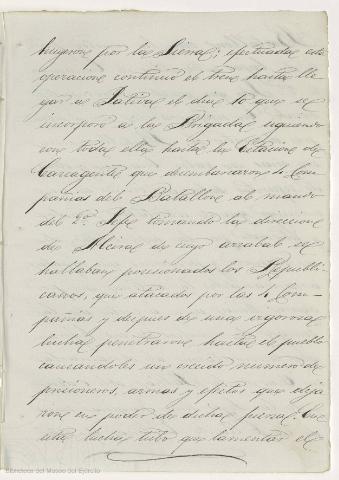 huyeron por la Sierra; efectuada esta
operacion continuó el tren hasta lle
gar a Jativa el dia 10 que se
incorporó a la Brigada siguiendo
con toda ella hasta la Estacion de
Carcagente que desembarcaron 4 Com-
pañias del Batallon al mando
del 2º Jefe tomando la direccion
de Alcira de cuyo arrabal se
hallaban posesionados los Republi-
canos, que atacados por las 4 Com-
pañias y despues de una vigorosa
lucha penetraron hasta el pueblo
causandoles un crecido numero de
prisioneros, armas y efectos que deja
ron en poder de dicha fuerza. En
esta lucha tubo que lamentar el
Biblioteca del Museo del Ejército